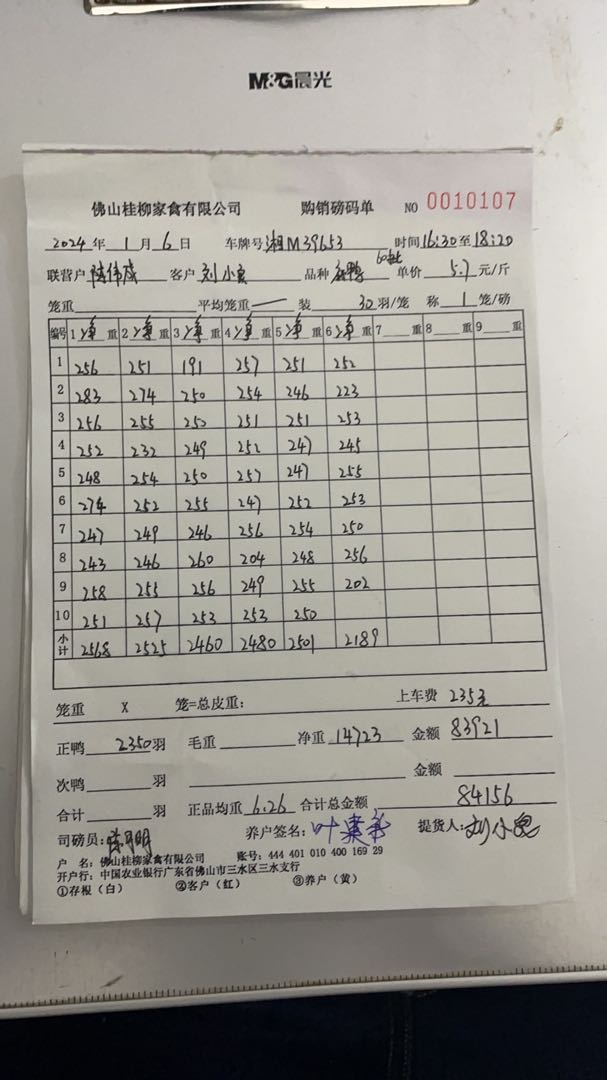 M&G晨光
佛山桂柳家禽有限公司 购销磅码单 NO 0010107
2024年1月6日 车牌号湘M39653 时间16:30至18:20
联营户 陈伟成 客户 刘小 品种 鸭 60批 单价 5.7 元/斤
笼重 平均笼重 一 装 30 羽/笼 称 1 笼/磅
编号 1 净重 2 净重 3 净重 4 净重 5 净重 6 净重 7 重 8 重 9 重
1 256 251 191 257 251 252
2 283 274 250 254 246 223
3 256 255 250 251 251 253
4 252 232 249 252 247 245
5 248 254 250 257 247 255
6 274 252 255 247 252 253
7 247 249 246 256 254 250
8 243 246 260 204 248 256
9 258 255 256 249 255 202
10 251 257 253 253 250
小计 2568 2525 2460 2480 2501 2189
笼重 X 笼=总皮重: 上车费 235元
正鸭 2350羽 毛重 净重 14723 金额 83921
次鸭 羽 金额
合计 羽 正品均重 6.26 合计总金额 84156
司磅员: 陈 明 养户签名: 叶 提货人: 刘小
户 名: 佛山桂柳家禽有限公司 账号: 444 401 010 400 169 29
开户行: 中国农业银行广东省佛山市三水区三水支行
①存根(白) ②客户(红) ③养户(黄)